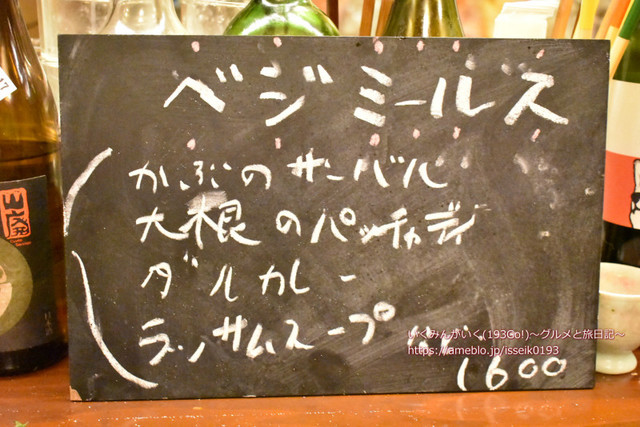 ベジミールス
かぶのサンバル
大根のパッチャディ
ダルカレー
ラッサムスープ
1600
いくみんがいく(193Go!)～グルメと旅日記～
https://ameblo.jp/isseik0193